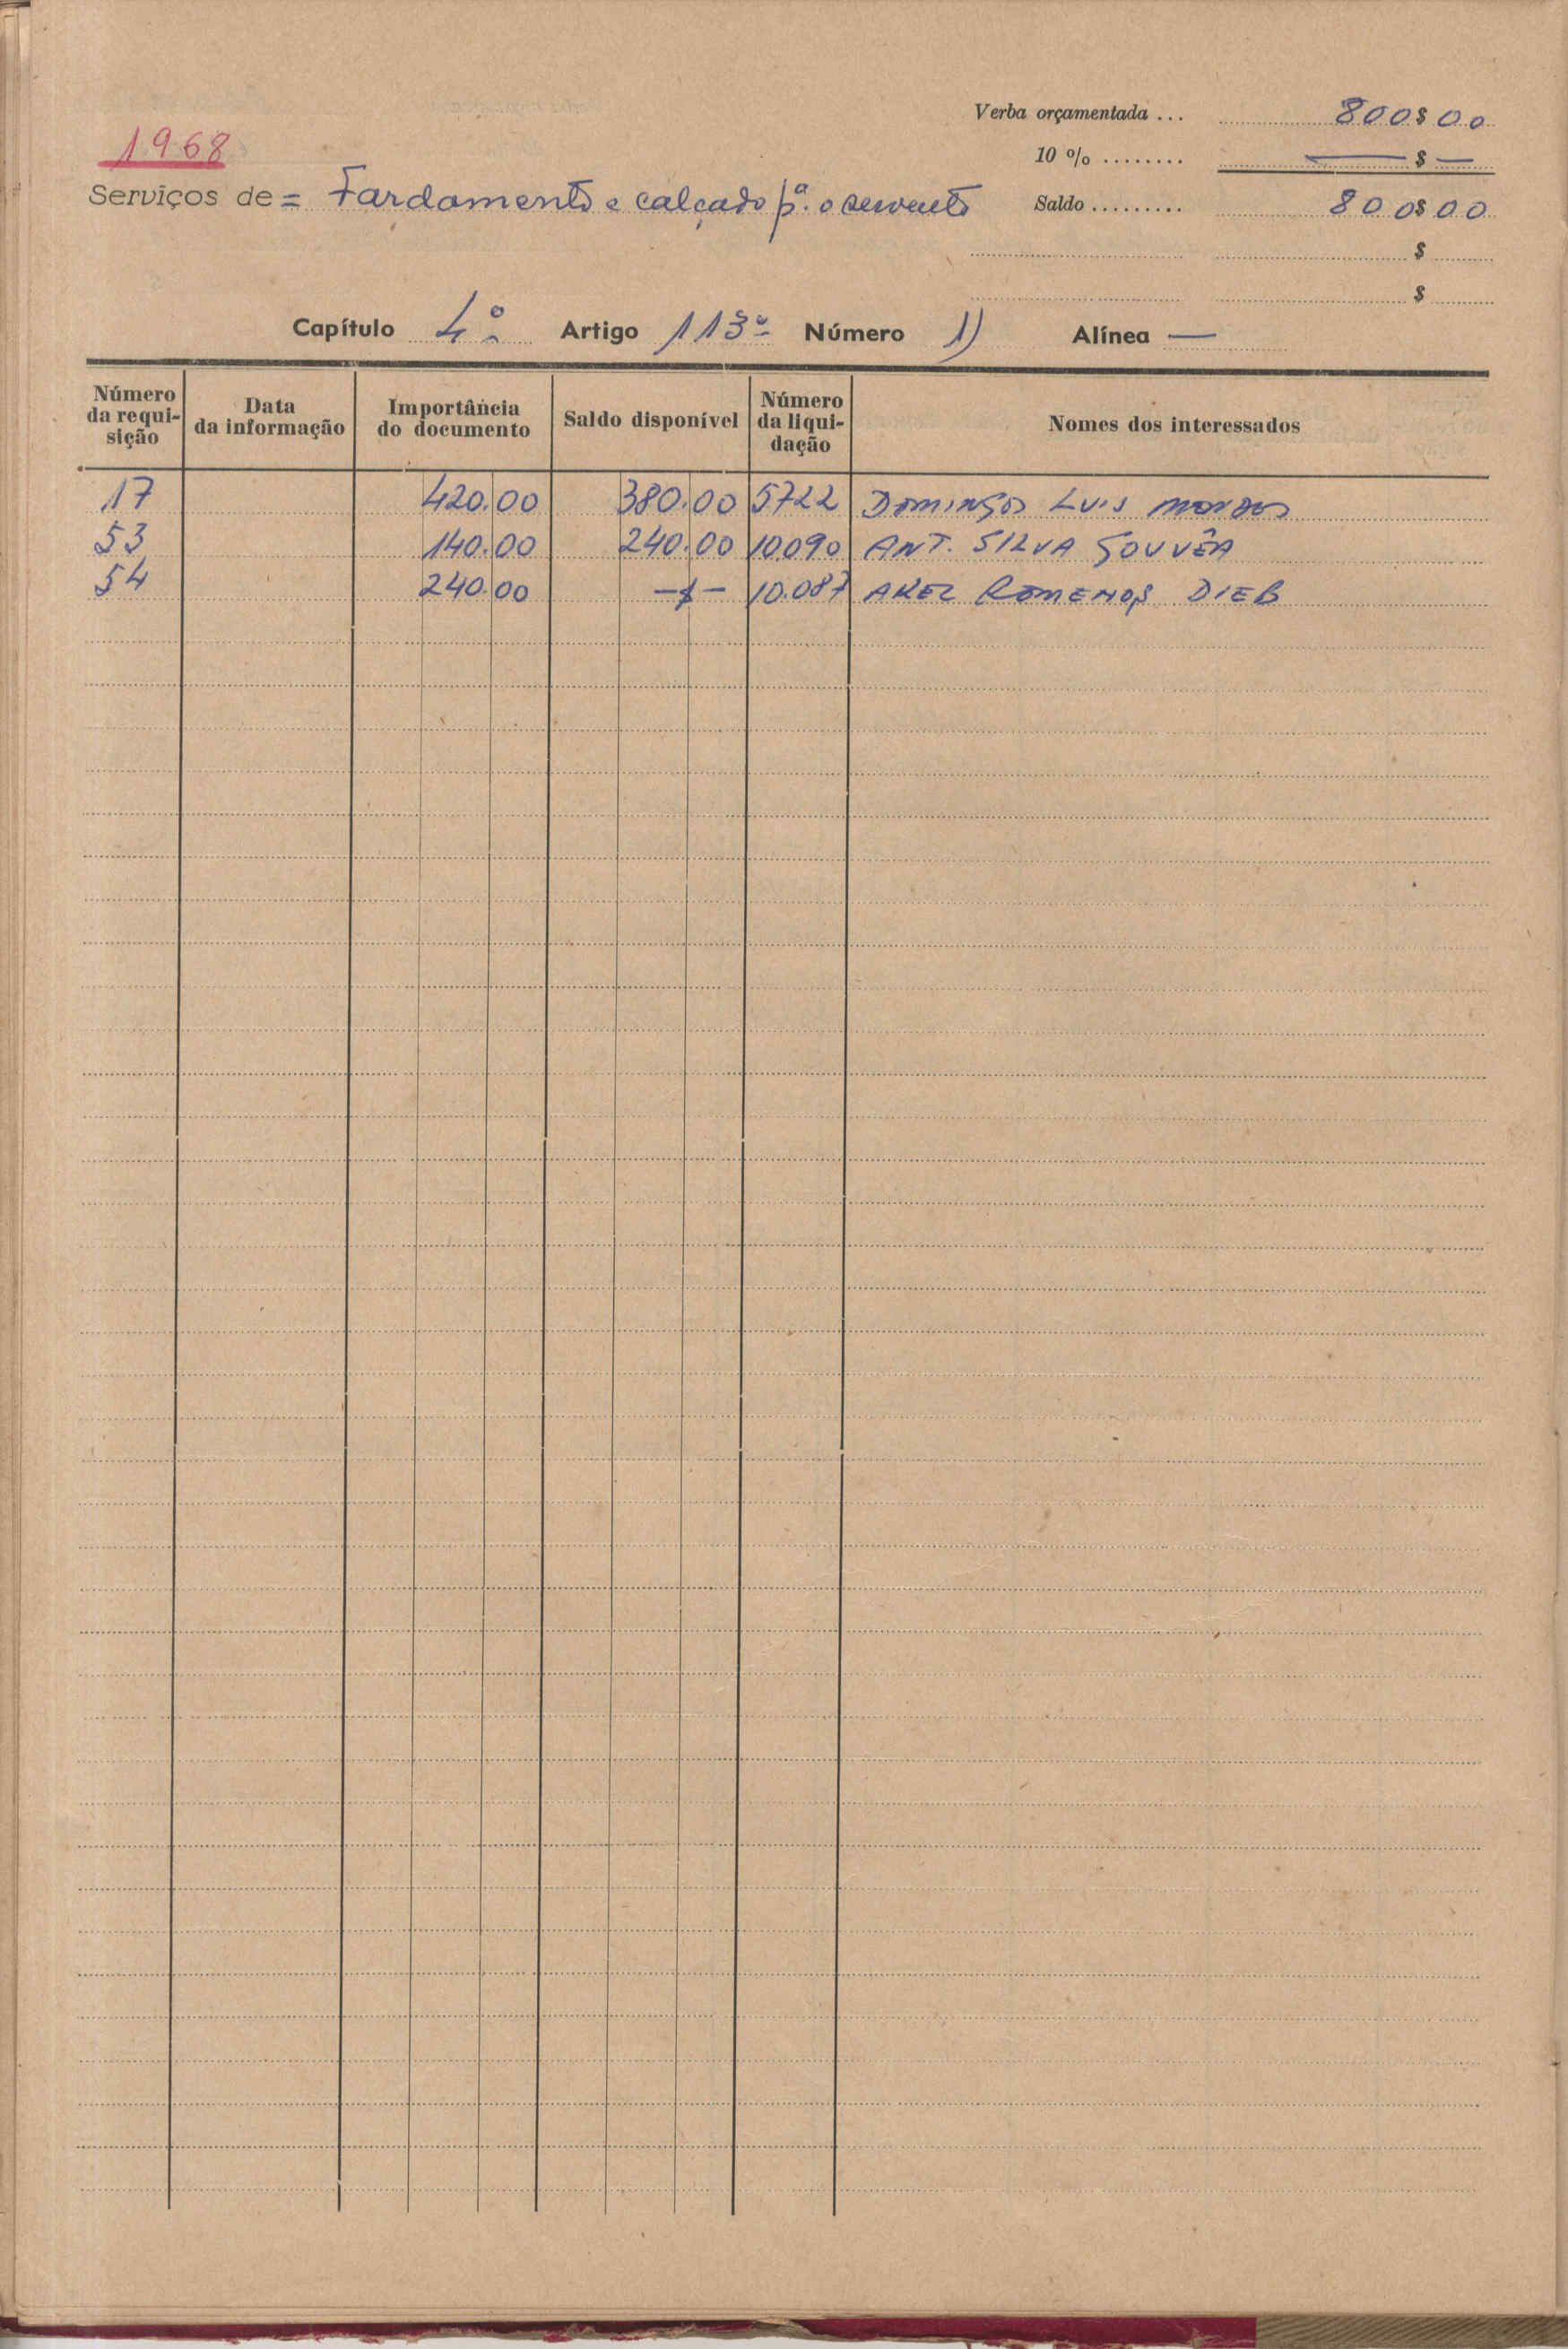 Verba orçamentada ... 800$00
1968
10 % ........ — $ —
Serviços de = Fardamento e calçado pª. o servente
Saldo ......... 800$00
$
$
Capítulo 4º Artigo 113º Número 1) Alínea —
Número da requi-sição Data da informação Importância do documento Saldo disponível Número da liqui-dação Nomes dos interessados
17 420.00 380.00 5722 DOMINGOS LUIS
53 140.00 240.00 10.090 ANT. SILVA GOUVÊA
54 240.00 —$— 10.087 AKEL ROMENOS DIEB